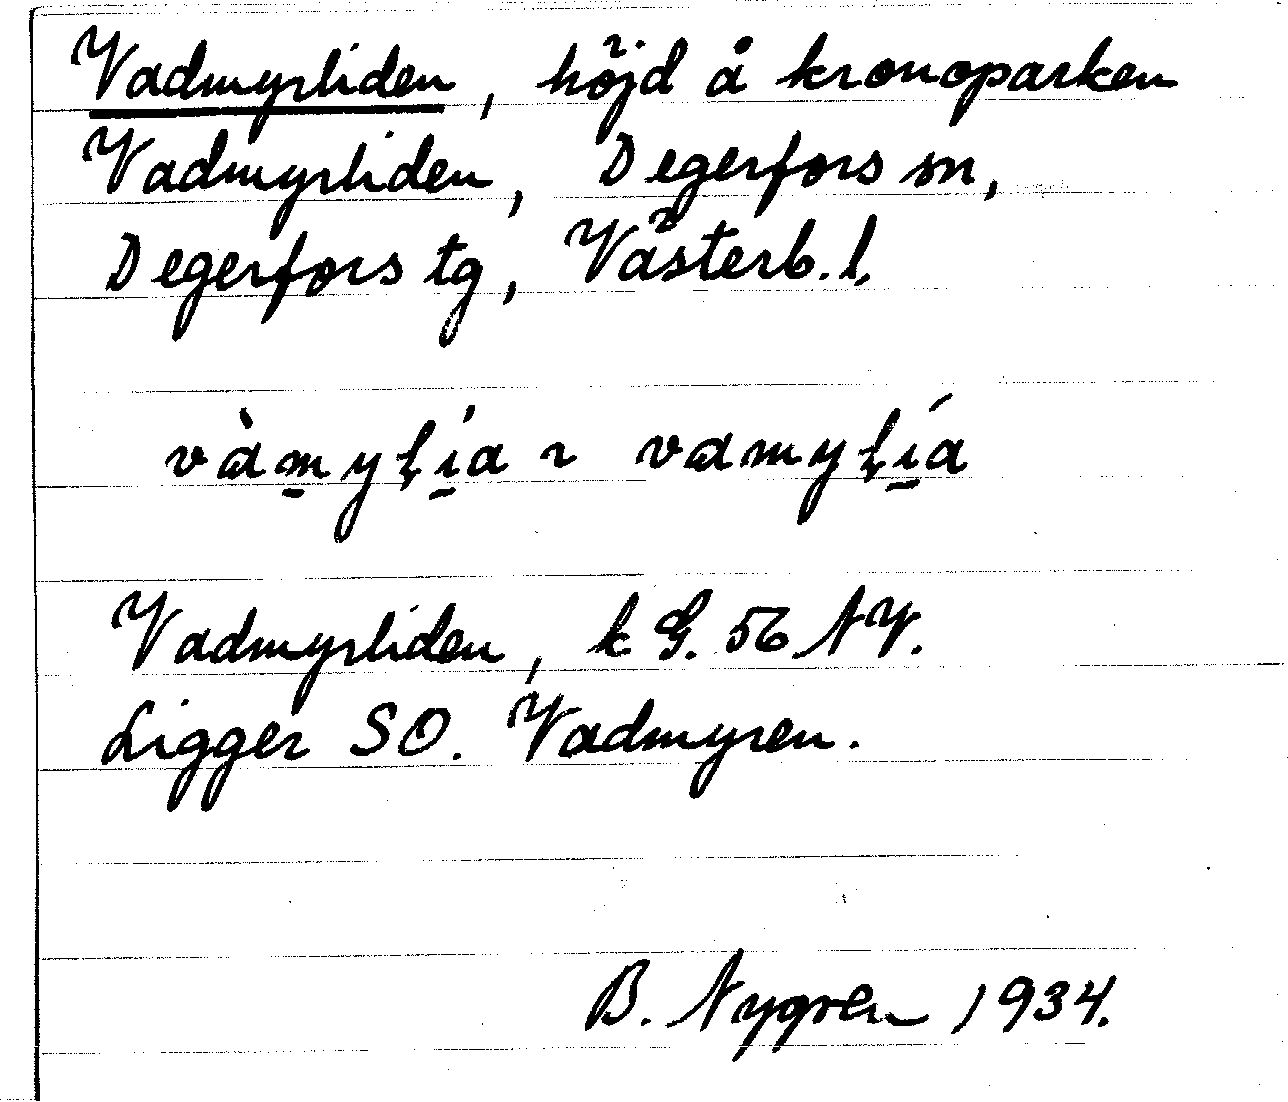 Vadmyrliden, höjd å kronoparken
Vadmyrliden, Degerfors sn,
Degerfors tg, Västerb. l.
Vadmyrliden, k G. 56 NV.
Ligger SO. Vadmyren.
B. Nygren 1934.